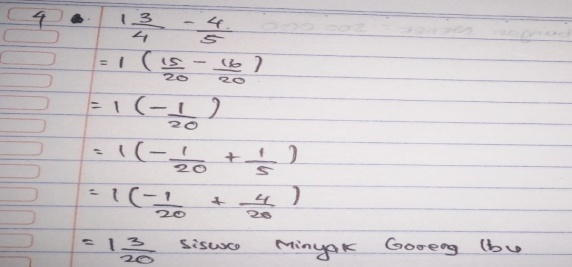 4. 1 3/4 - 4/5
= 1 (15/20 - 16/20)
= 1 (-1/20)
= 1 (-1/20 + 1/5)
= 1 (-1/20 + 4/20)
= 1 3/20 siswa Minyak Goreng Ibu